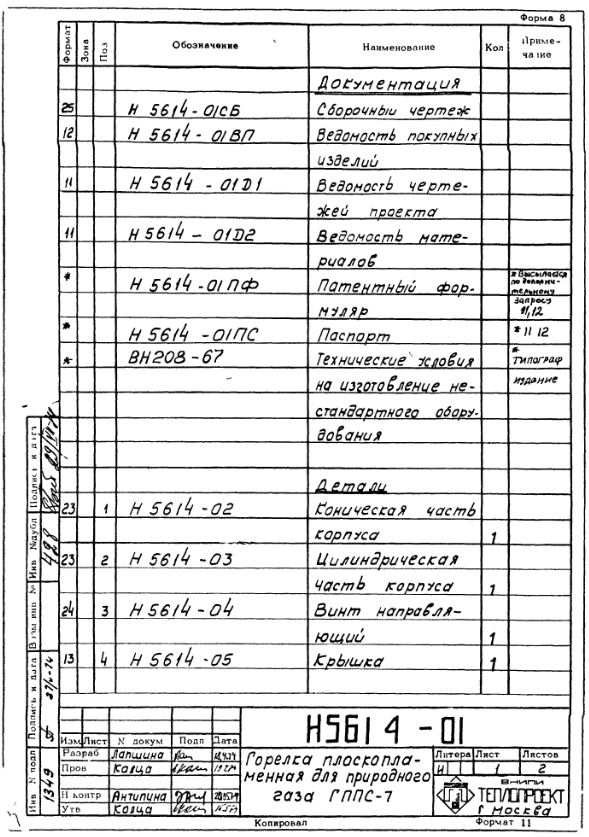 Форма 8
Формат Зона Поз Обозначение Наименование Кол Приме-
чание
Документация
25 Н 5614-01СБ Сборочный чертеж
12 Н 5614-01ВП Ведомость покупных
изделий
11 Н 5614-01D1 Ведомость черте-
жей проекта
11 Н 5614-01D2 Ведомость мате-
риалов
* Н 5614-01ПФ Патентный фор- * Высылается
по дополни-
тельному
муляр запросу
11,12
* Н 5614-01ПС Паспорт * 11 12
* ВН208-67 Технические условия * типограф
на изготовление не- издание
стандартного обору-
дования
Детали
23 1 Н 5614-02 Коническая часть
корпуса 1
23 2 Н 5614-03 Цилиндрическая
часть корпуса 1
24 3 Н 5614-04 Винт направля-
ющий 1
13 4 Н 5614-05 Крышка 1
Подпись и дата
Инв №дубл 498
Взам инв №
Подпись и дата
Инв N подл 1349
Н5614-01
Изм Лист N докум Подп Дата
Разраб Лапшина
Пров
Н контр Антипина
Утв
Горелка плоскопла-
менная для природного
газа ГППС-7
Литера Лист Листов
И 1 2
ВНИПИ
ТЕПЛОПРОЕКТ
г Москва
Копировал Формат 11